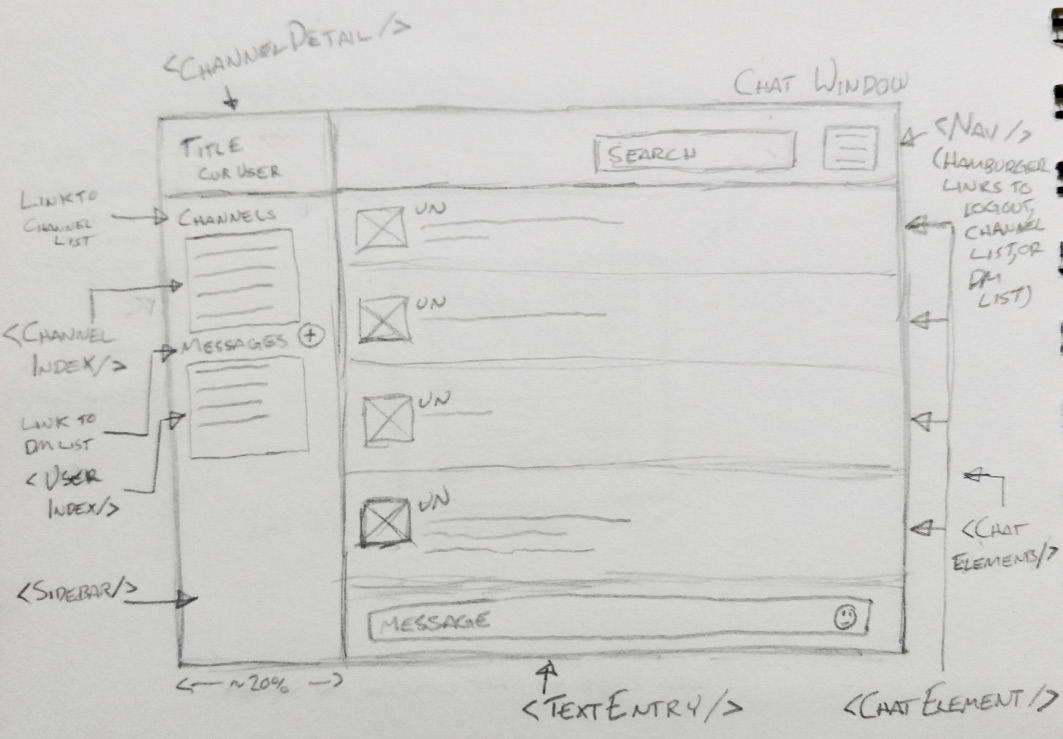 <CHANNELDETAIL/>
CHAT WINDOW
TITLE
CUR USER
SEARCH
<NAV/>
(HAMBURGER
LINKS TO
LOGOUT,
CHANNEL
LIST, OR
DM
LIST)
LINK TO
CHANNEL
LIST
CHANNELS
UN
<CHANNEL
INDEX/>
MESSAGES +
UN
LINK TO
DM LIST
UN
<USER
INDEX/>
UN
<CHAT
ELEMENTS/>
<SIDEBAR/>
MESSAGE
~20%
<TEXTENTRY/>
<CHATELEMENT/>